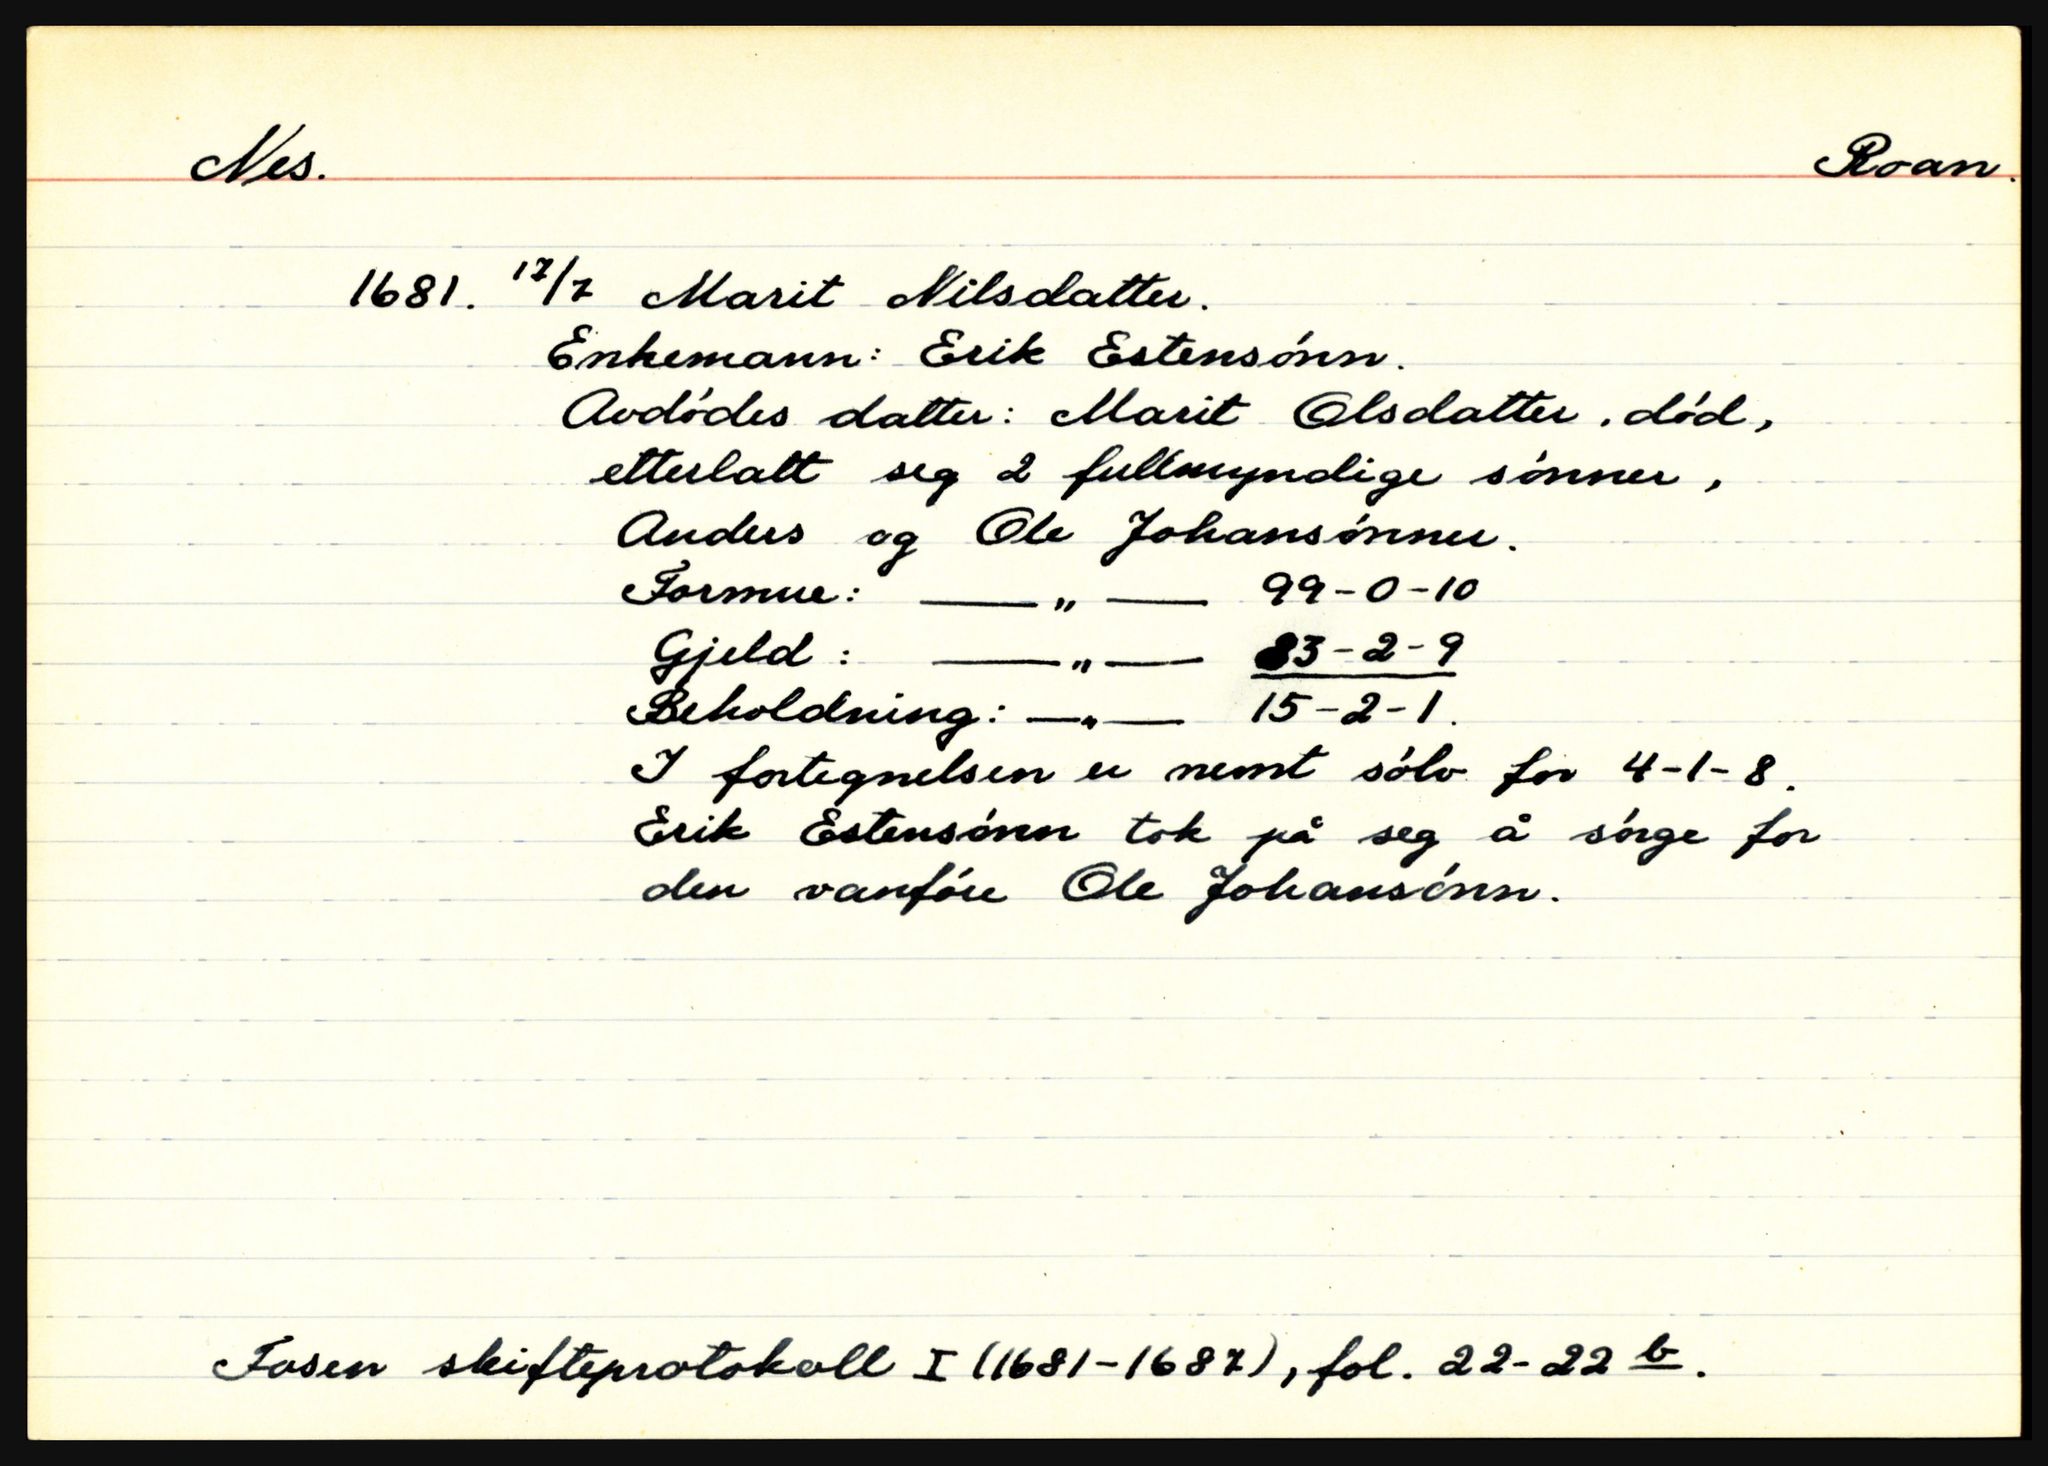 Nes. Roan.
1681. 17/7 Marit Nilsdatter.
Enkemann: Erik Estensónn.
Avdódes datter: Marit Olsdatter, dód,
etterlatt seg 2 fullmyndige sónner,
Anders og Ole Johansónner.
Formue: —„— 99-0-10
Gjeld: —„— 83-2-9
Beholdning: —„— 15-2-1.
I fortegnelsen er nemt sólv for 4-1-8.
Erik Estensónn tok på seg å sórge for
den vanfóre Ole Johansónn.
Fosen skifteprotokoll I (1681-1687), fol. 22-22 b.